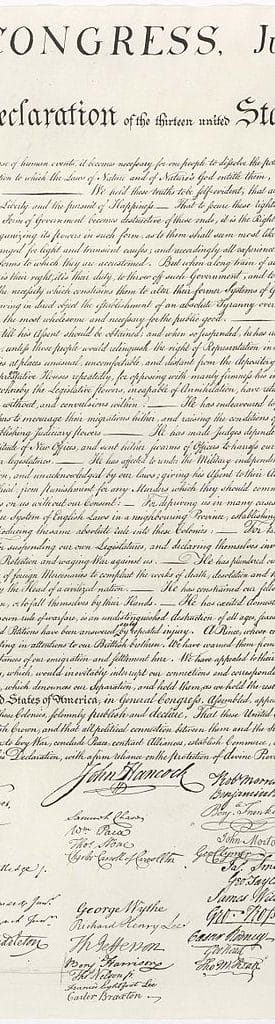 CONGRESS, Ju
eclaration of the thirteen united Sta
se of human events, it becomes necessary for one people to dissolve the po
tion to which the Laws of Nature and of Nature's God entitle them,
We hold these truths to be self-evident, that a
Liberty and the pursuit of Happiness. — That to secure these right
Form of Government becomes destructive of these ends, it is the Right
ganizing its powers in such form, as to them shall seem most like
nged for light and transient causes; and accordingly all experience
forms to which they are accustomed. But when a long train of a
is their right, it is their duty, to throw off such Government, and to
the necessity which constrains them to alter their former Systems of G
aving in direct object the establishment of an absolute Tyranny over
the most wholesome and necessary for the public good.
till his Assent should be obtained; and when so suspended, he has u
unless those people would relinquish the right of Representation in
es at places unusual, uncomfortable, and distant from the depository
Houses repeatedly, for opposing with manly firmness his in
whereby the Legislative powers, incapable of Annihilation, have retu
without, and convulsions within. — He has endeavoured to
to encourage their migrations hither, and raising the conditions of
blishing Judiciary powers. — He has made Judges depende
titude of New Offices, and sent hither swarms of Officers to harass our
legislatures. — He has affected to render the Military independen
on, and unacknowledged by our laws; giving his Assent to their A
trial, from Punishment for any Murders which they should comm
es on us without our Consent: — For depriving us in many cases
e System of English Laws in a neighbouring Province, establishing
oducing the same absolute rule into these Colonies: — For ta
suspending our own Legislatures, and declaring themselves inve
Protection and waging War against us. — He has plundered ou
of foreign Mercenaries to compleat the works of death, desolation and t
y the Head of a civilized nation. — He has constrained our fello
n, or to fall themselves by their Hands. — He has excited domest
own rule of warfare, is an undistinguished destruction of all ages, sexes
d Petitions have been answered only by repeated injury. A Prince, whose
ting in attentions to our Brittish brethren. We have warned them from
tances of our emigration and settlement here. We have appealed to their
, which, would inevitably interrupt our connections and correspond
which denounces our Separation, and hold them, as we hold the res
d States of America, in General Congress, Assembled, appe
these Colonies, solemnly publish and declare, That these United C
sh Crown, and that all political connection between them and the
to levy War, conclude Peace, contract Alliances, establish Commerce,
s Declaration, with a firm reliance on the Protection of divine Prov
John Hancock
Samuel Chase
Wm Paca
Thos Stone
Charles Carroll of Carrollton
George Wythe
Richard Henry Lee
Th Jefferson
Benj Harrison
Thos Nelson jr.
Francis Lightfoot Lee
Carter Braxton
Robt Morris
Benjamin
Benj. Frankl
John Mort
Geo Clymer
Jas Sm
Geo Tayl
James Wil
Geo. Ross
Caesar Rodney
Geo Read
Tho M:Kean
ddleton